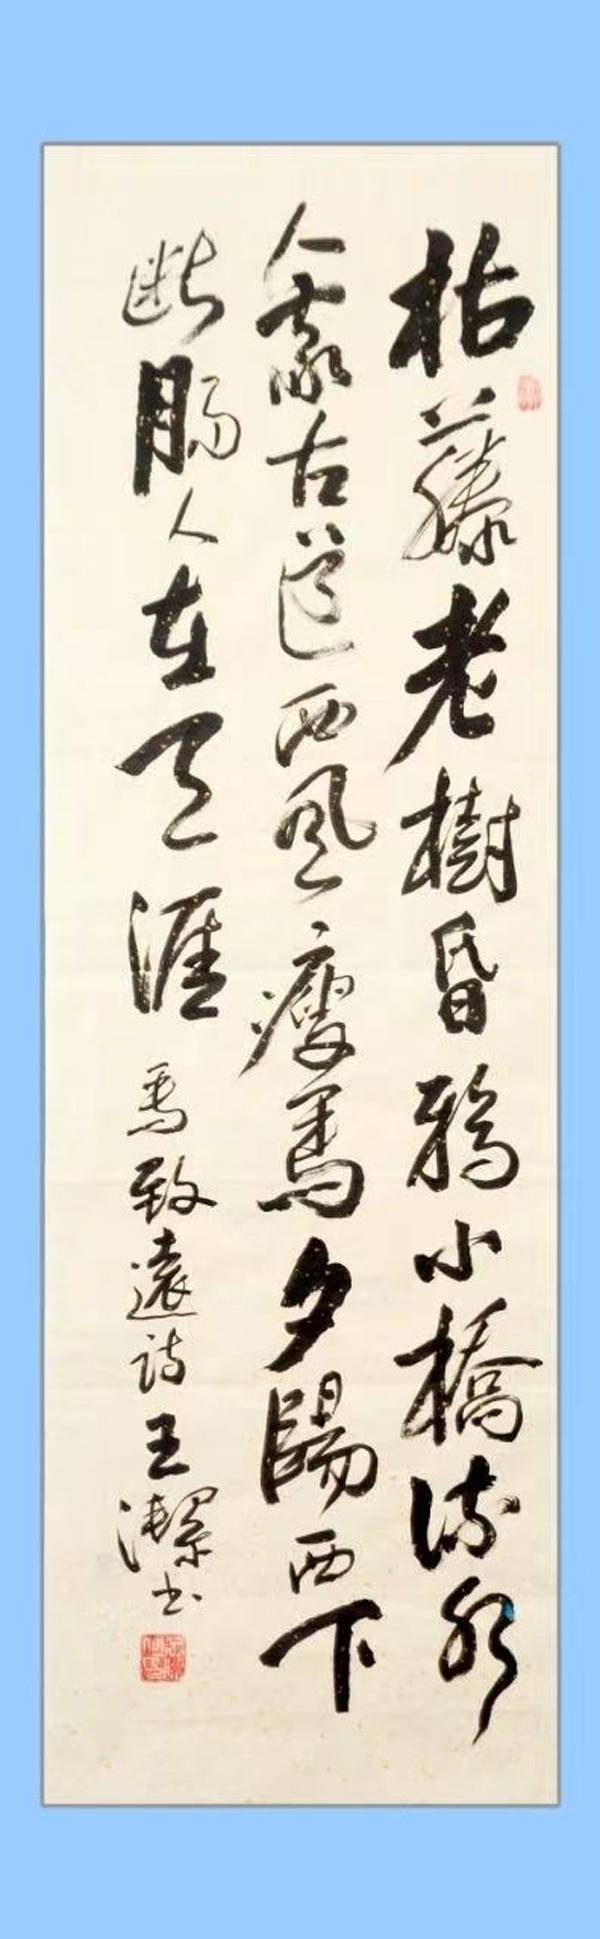 枯藤老樹昏鴉小橋流水
人家古道西風瘦馬夕陽西下
断腸人在天涯 馬致遠詩 王潔书